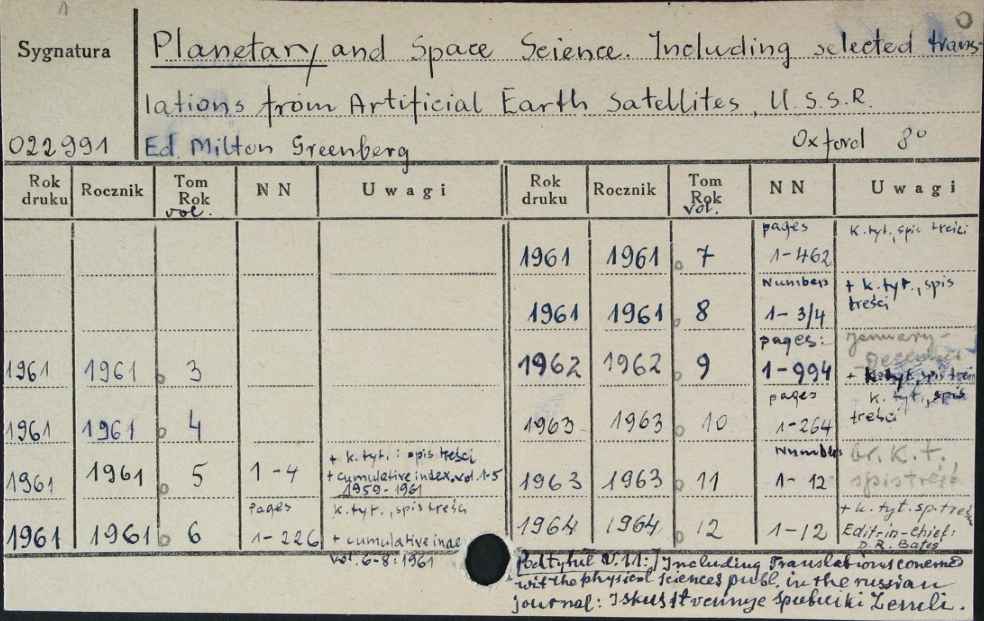 1
Sygnatura
Planetary and Space Science. Including selected trans-
lations from Artificial Earth Satellites, U.S.S.R.
022991 Ed. Milton Greenberg Oxford 8°
Rok druku Rocznik Tom Rok vol. NN Uwagi
1961 1961 3
1961 1961 4
1961 1961 5 1-4 + k. tyt. : spis treści + cumulative index vol. 1-5 1959-1961
1961 1961 6 pages 1-226 k. tyt., spis treści + cumulative inde vol. 6-8: 1961
Rok druku Rocznik Tom Rok vol. NN Uwagi
1961 1961 7 pages 1-462 k. tyt., spis treści
1961 1961 8 Numbers 1-3/4 + k. tyt., spis treści
1962 1962 9 pages: 1-994 january - + k. tyt., spis treści
1963 1963 10 pages 1-264 k. tyt., spis treści
1963 1963 11 Numbers 1-12 br. k. t. spis treśś
1964 1964 12 1-12 + k. tyt. sp. treś Edit-in-chief: D.R. Bates
[Podtytuł V. 11:] Including Translations concerned
wit the physical sciences publ. in the russian
journal: Iskusstvennyje Sputniki Zemli.